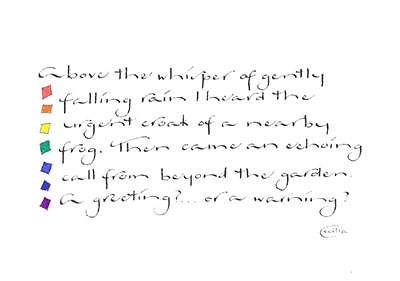 Above the whisper of gently
falling rain I heard the
urgent croak of a nearby
frog. Then came an echoing
call from beyond the garden.
A greeting?... or a warning?
Cecilia